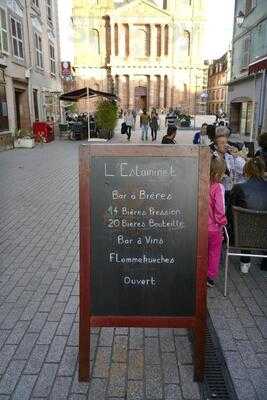 L'Estaminet
Bar à Bières
14 Bières Pression
20 Bieres Bouteille
Bar à Vins
Flammekueches
Ouvert